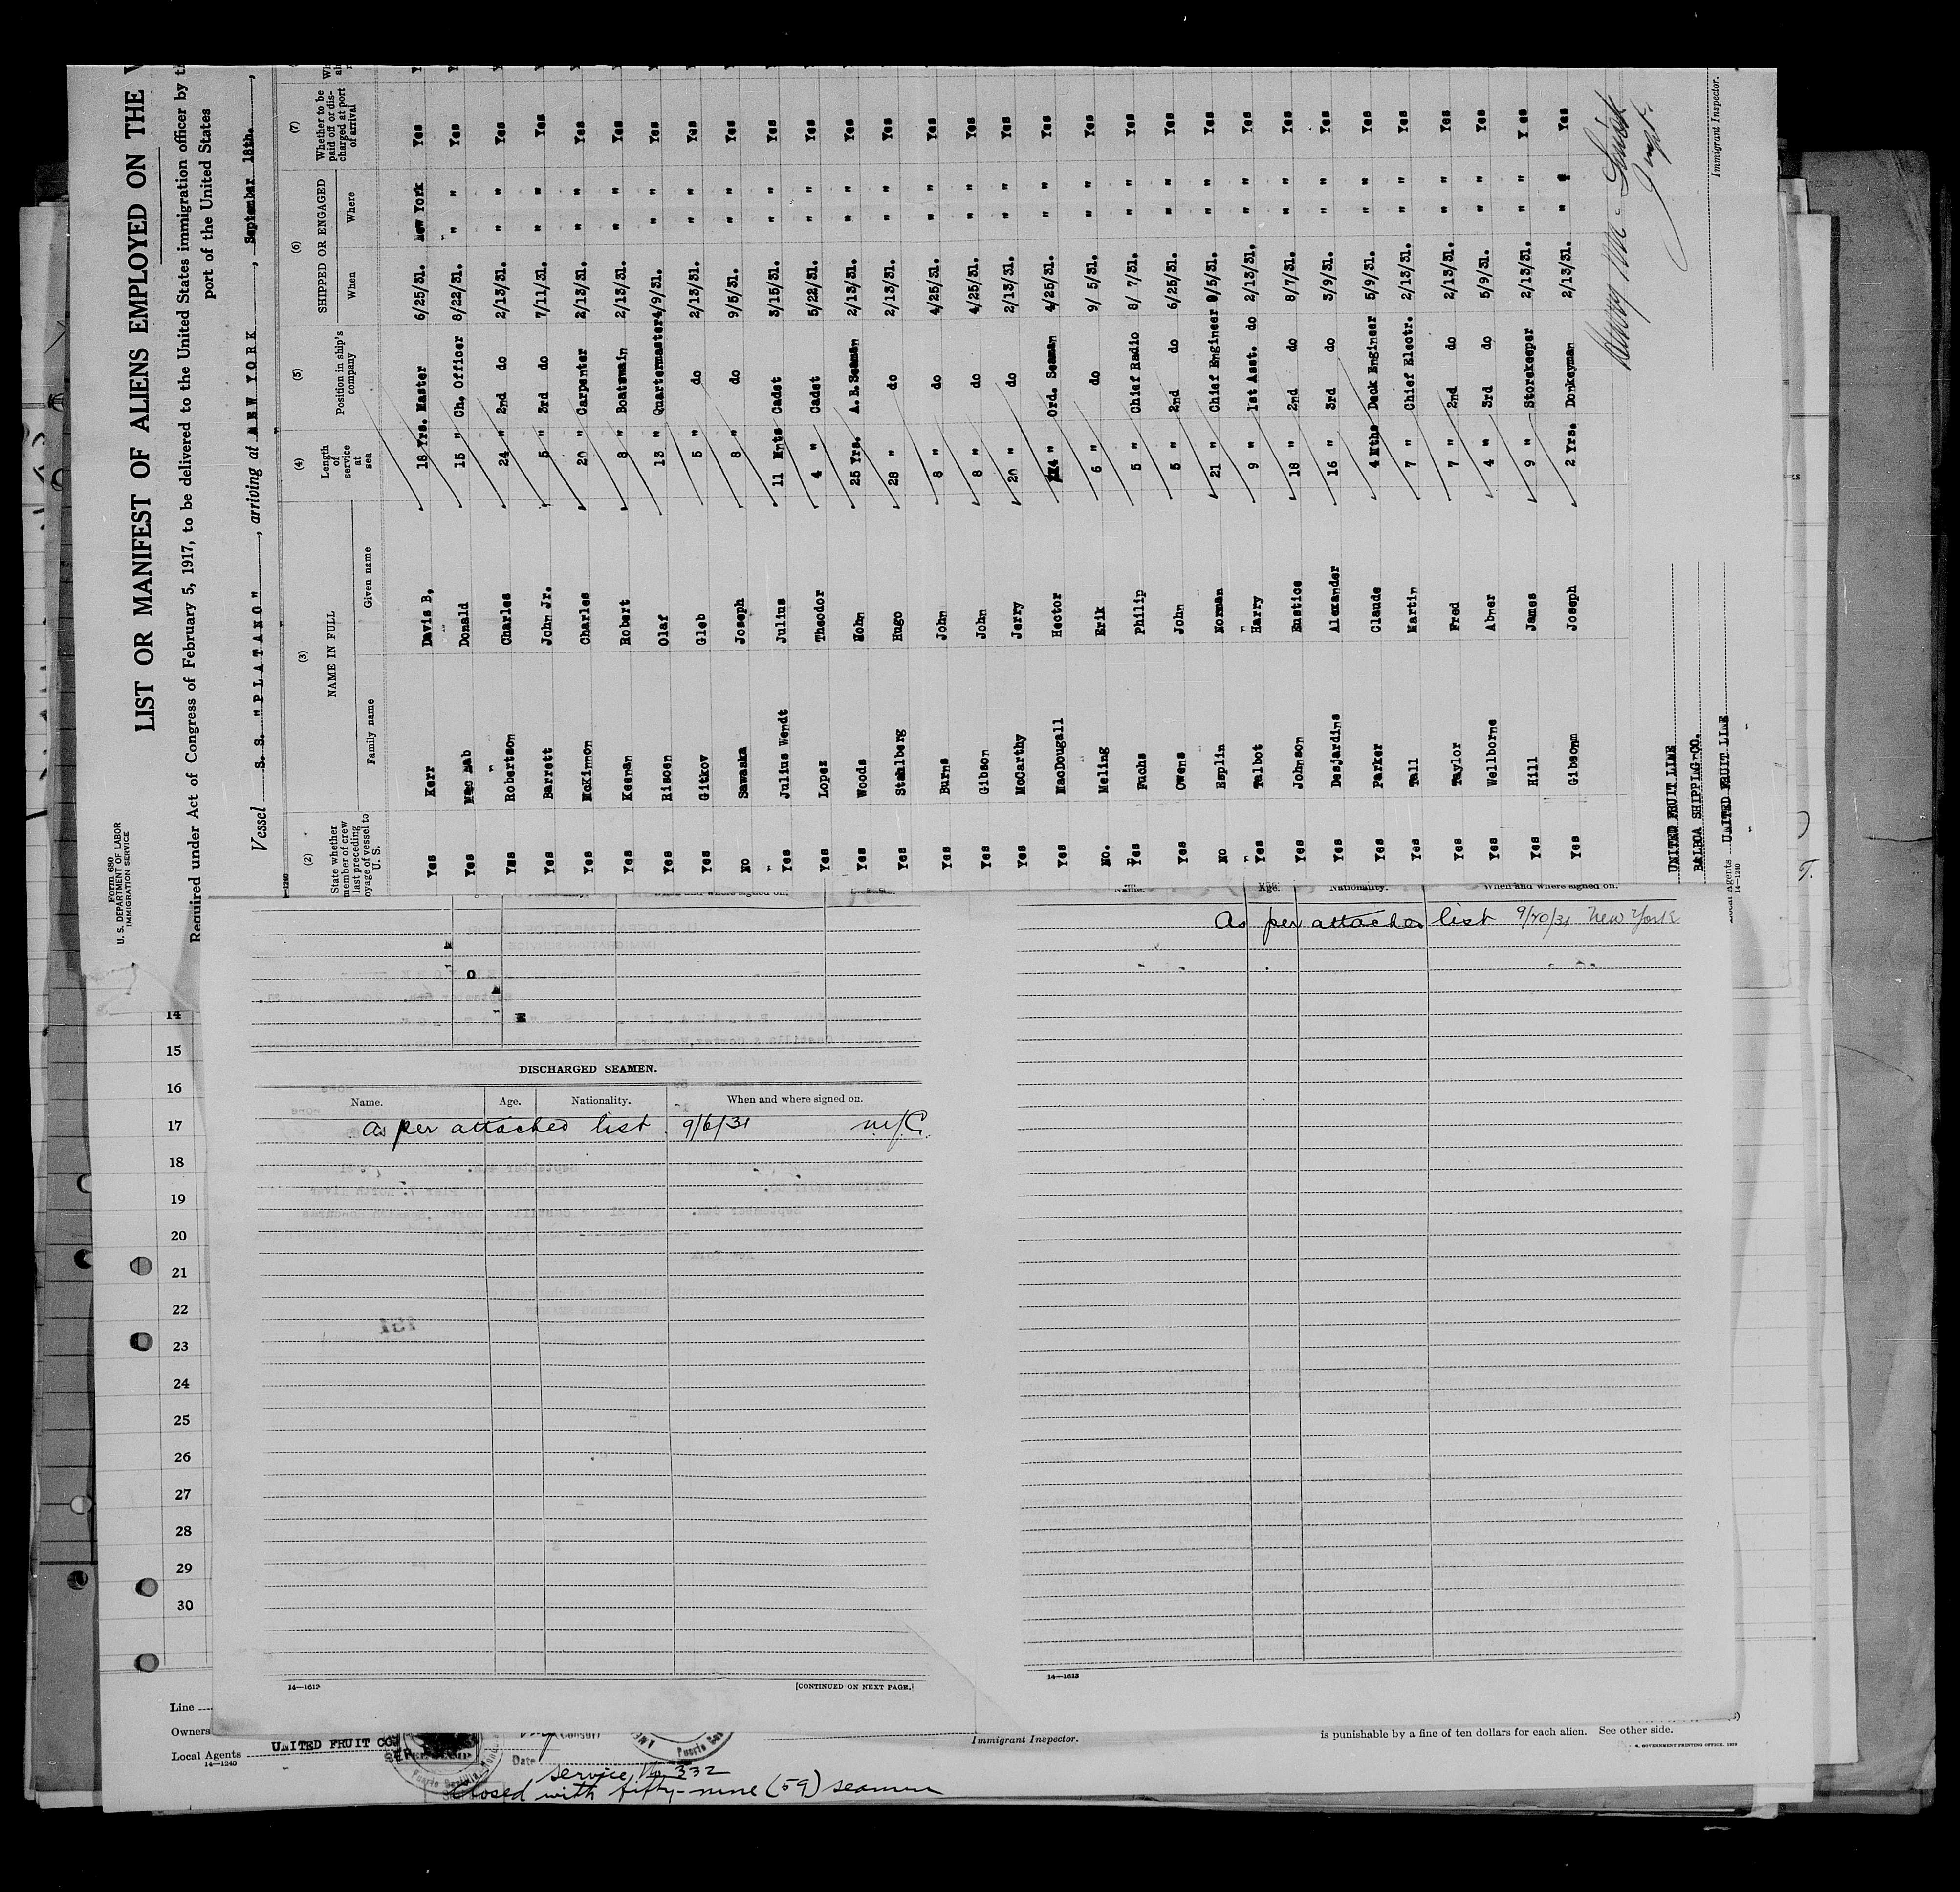 Form 680
U. S. DEPARTMENT OF LABOR
IMMIGRATION SERVICE
LIST OR MANIFEST OF ALIENS EMPLOYED ON THE
Required under Act of Congress of February 5, 1917, to be delivered to the United States immigration officer by
port of the United States
Vessel S. S. "PLATANO", arriving at NEW YORK, September 18th.,
(2) (3) (4) (5) (6) (7)
State whether member of crew last preceding voyage of vessel to U. S. NAME IN FULL Length of service at sea Position in ship's company SHIPPED OR ENGAGED Whether to be paid off or discharged at port of arrival
Family name Given name When Where
Yes Kerr Davis B. 18 Yrs. Master 6/25/31. New York Yes
Yes Mac Nab Donald 15 " Ch. Officer 8/22/31. " " Yes
Yes Robertson Charles 24 " 2nd do 2/13/31. " " Yes
Yes Barrett John Jr. 5 " 3rd do 7/11/31. " " Yes
Yes McKinnon Charles 20 " Carpenter 2/13/31. " " Yes
Yes Keenan Robert 8 " Boatswain 2/13/31. " " Yes
Yes Riscen Olaf 13 " Quartermaster 4/9/31. " " Yes
Yes Gitkov Gleb 5 " do 2/13/31. " " Yes
No Sawaska Joseph 8 " do 9/5/31. " " Yes
Yes Julius Wendt Julius 11 Mnts Cadet 3/15/31. " " Yes
Yes Lopez Theodor 4 " Cadet 5/22/31. " " Yes
Yes Woods 25 Yrs. A.B.Seaman 2/13/31. " " Yes
Yes Stahlberg Hugo 28 " do 2/13/31. " " Yes
Yes Burns John 8 " do 4/25/31. " " Yes
Yes Gibson John 8 " do 4/25/31. " " Yes
Yes McCarthy Jerry 20 " do 2/13/31. " " Yes
Yes MacDougall Hector 4 " Ord. Seaman 4/25/31. " " Yes
No. Meling Erik 6 " do 9/ 5/31. " " Yes
Yes Fuchs Philip 5 " Chief Radio 8/ 7/31. " " Yes
Yes Owens John 5 " 2nd do 6/25/31. " " Yes
No Esplin Norman 21 " Chief Engineer 9/5/31. " " Yes
Yes Talbot Harry 9 " 1st Asst. do 2/13/31. " " Yes
Yes Johnson Eustice 18 " 2nd do 8/7/31. " " Yes
Yes Desjardins Alexander 16 " 3rd do 3/9/31. " " Yes
Yes Parker Claude 4 Mths Deck Engineer 5/9/31. " " Yes
Yes Tall Martin 7 " Chief Electr. 2/13/31. " " Yes
Yes Taylor Fred 7 " 2nd do 2/13/31. " " Yes
Yes Wellborne Abner 4 " 3rd do 5/9/31. " " Yes
Yes Hill James 9 " Storekeeper 2/13/31. " " Y es
Yes Gibsonn Joseph 2 Yrs. Donkeyman 2/13/31. " " Yes
UNITED FRUIT LINE
BALBOA SHIPPING CO.
Local Agents UNITED FRUIT LINE
14—1240
Immigrant Inspector.
Name. Age. Nationality. When and where signed on.
As per attached list 9/20/31 New York
DISCHARGED SEAMEN.
Name. Age. Nationality. When and where signed on.
As per attached list. 9/6/31 N.Y.C.
14
15
16
17
18
19
20
21
22
23
24
25
26
27
28
29
30
14—1613
[CONTINUED ON NEXT PAGE.]
14—1613
Line
Owners
Local Agents UNITED FRUIT CO.
14—1240
Date
Immigrant Inspector.
is punishable by a fine of ten dollars for each alien. See other side.
service No 332
Closed with fifty-nine (59) seamen